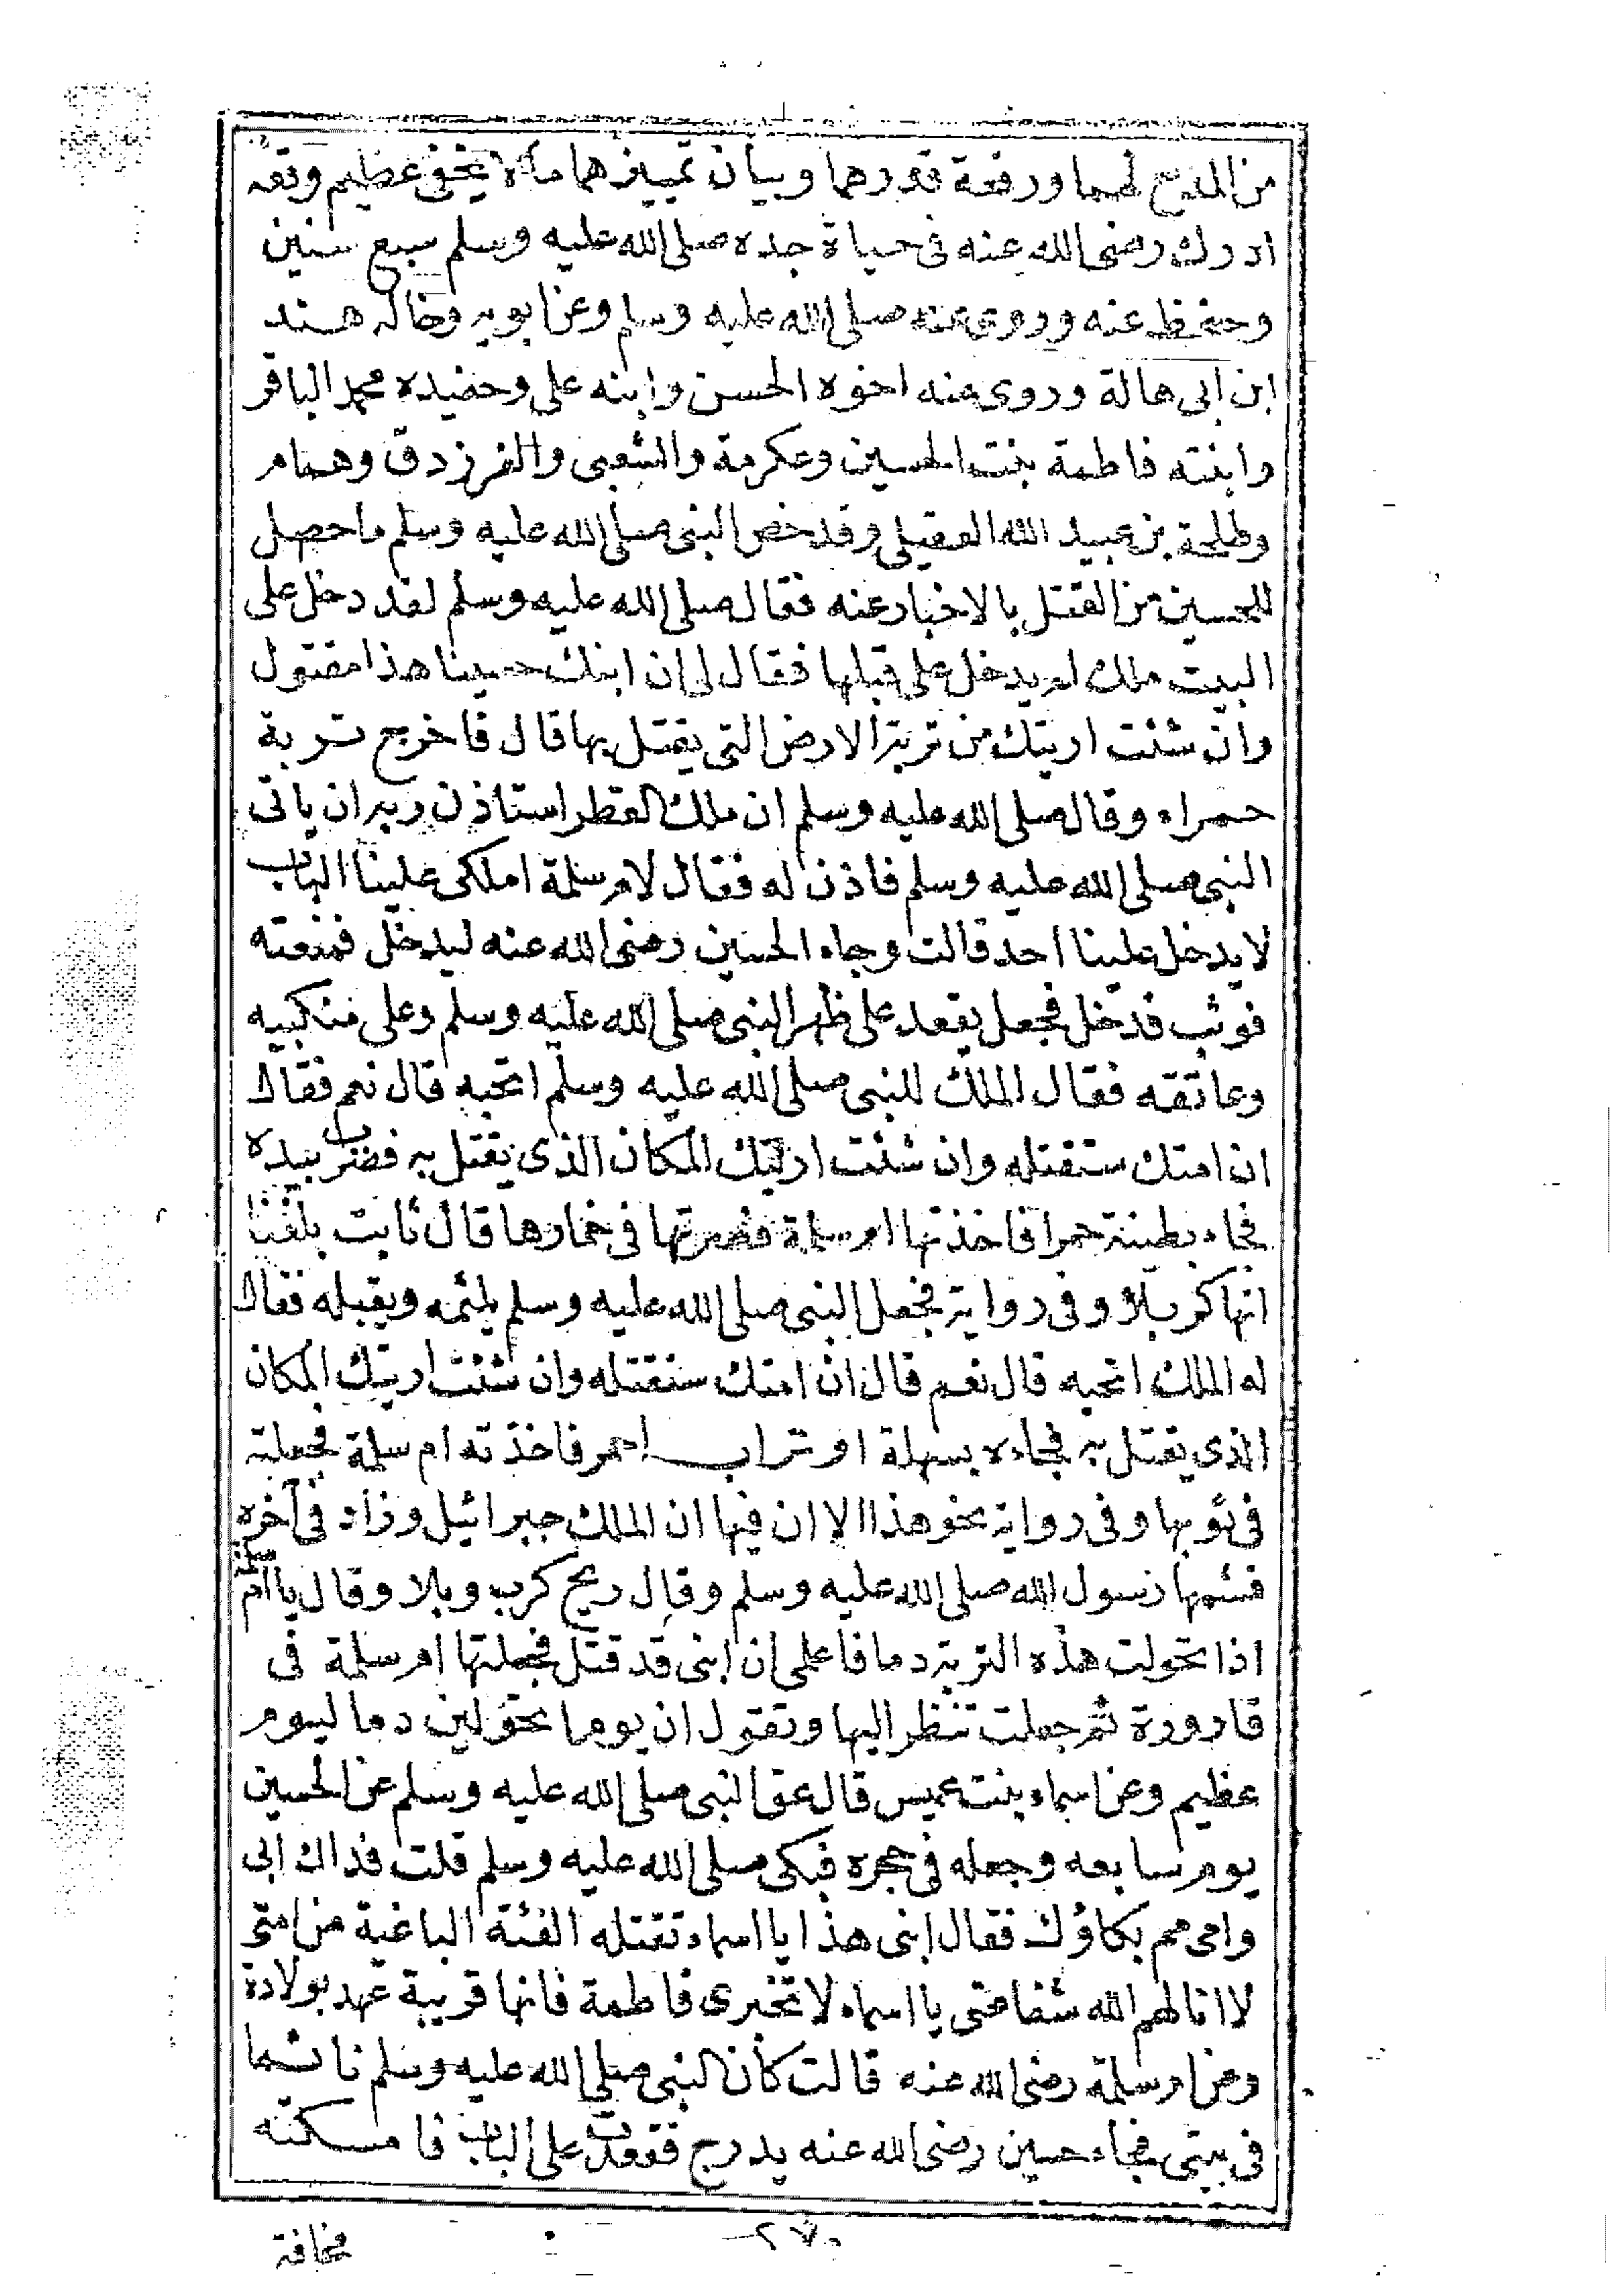 من المديح لهما ورفعة قدرهما وبيان تمييزهما ما لا يخفى عظيم وقعه
ادرك رضى الله عنه فى حياة جده صلى الله عليه وسلم سبع سنين
وحفظ عنه وروى عنه صلى الله عليه وسلم وعن ابويه وخاله هند
ابن ابى هالة وروى عنه اخوه الحسن وابنه على وحفيده محمد الباقر
وابنته فاطمة بنت الحسين وعكرمة والشعبى والفرزدق وهمام
وطلحة بن عبيد الله العقيلى وقد خص النبى صلى الله عليه وسلم ما حصل
للحسين من القتل بالاخبار عنه فقال صلى الله عليه وسلم لقد دخل على
البيت ملك لم يدخل على قبلها فقال لى ان ابنك حسينا هذا مقتول
وان شئت اريتك من تربة الارض التى يقتل بها قال فاخرج تربة
حمراء وقال صلى الله عليه وسلم ان ملك القطر استاذن ربه ان ياتى
النبى صلى الله عليه وسلم فاذن له فقال لام سلمة املكى علينا الباب
لا يدخل علينا احد قالت وجاء الحسين رضى الله عنه ليدخل فمنعته
فوثب فدخل فجعل يقعد على ظهر النبى صلى الله عليه وسلم وعلى منكبيه
وعاتقه فقال الملك للنبى صلى الله عليه وسلم اتحبه قال نعم فقال
ان امتك ستقتله وان شئت اريتك المكان الذى يقتل به فضرب بيده
فجاء بطينة حمرا فاخذتها ام سلمة فصرتها فى خمارها قال ثابت بلغنا
انها كربلا وفى رواية فجعل النبى صلى الله عليه وسلم يلثمه ويقبله فقال
له الملك اتحبه قال نعم قال ان امتك ستقتله وان شئت اريتك المكان
الذى يقتل به فجاءه بسهلة او تراب احمر فاخذته ام سلمة فجعلته
فى ثوبها وفى رواية نحو هذا الا ان فيها ان الملك جبرائيل وزاد فى آخره
فشمها رسول الله صلى الله عليه وسلم وقال ريح كرب وبلا وقال يا ام سلمة
اذا تحولت هذه التربة دما فاعلمى ان ابنى قد قتل فجعلتها ام سلمة فى
قارورة ثم جعلت تنظر اليها وتقول ان يوما تحولين دما ليوم
عظيم وعن اسماء بنت عميس قال عق النبى صلى الله عليه وسلم عن الحسين
يوم سابعه وجعله فى حجره فبكى صلى الله عليه وسلم قلت فداك ابى
وامى مم بكاؤك فقال ابنى هذا يا اسماء تقتله الفئة الباغية من امتى
لا انالهم الله شفاعتى يا اسماء لا تخبرى فاطمة فانها قريبة عهد بولادة
وعن ام سلمة رضى الله عنه قالت كان النبى صلى الله عليه وسلم نائما
فى بيتى فجاء حسين رضى الله عنه يدرج فقعدت على الباب فامسكته
مخافة